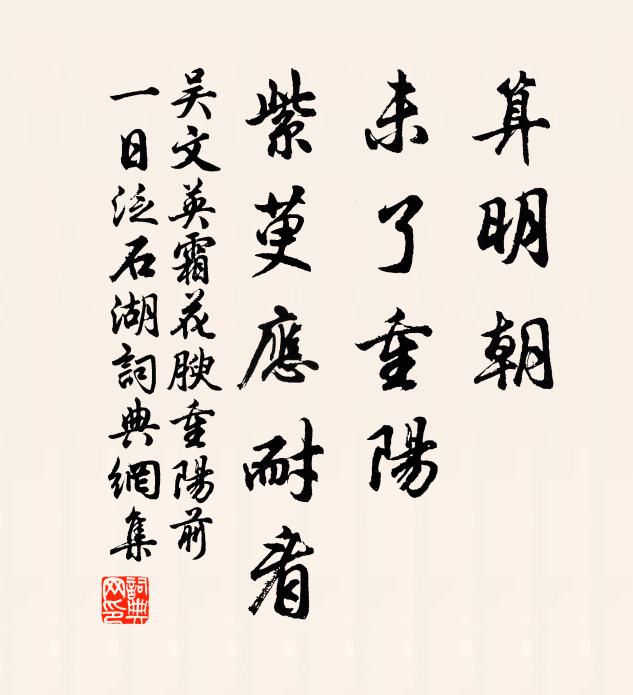 算明朝
未了重陽
紫萸應耐看
吴文英霜花腴重陽前
一日泛石湖詞典網集
詞典网印